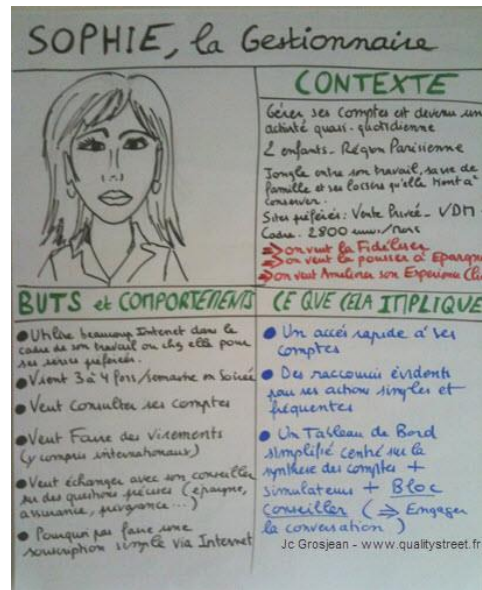 SOPHIE, la Gestionnaire
CONTEXTE
Gérer ses comptes est devenu une
activité quasi-quotidienne
2 enfants - Région Parisienne
Jongle entre son travail, sa vie de
famille et ses loisirs qu'elle tient à
conserver.
Sites préférés: Vente Privée - VDM
Cadre. 2800 euros/mois
=> on veut la Fidéliser
=> on veut la pousser à Epargne
=> on veut Améliorer son Expérience Cli
BUTS et COMPORTEMENTS
● Utilise beaucoup Internet dans le
cadre de son travail ou chez elle pour
ses séries préférées.
● Vient 3 à 4 fois/semaine en Soirée
● Veut Consulter ses comptes
● Veut Faire des virements
(y compris internationaux)
● Veut échanger avec son conseiller
sur des questions précises (épargne,
assurance, prévoyance...)
● Pourquoi pas faire une
souscription simple via Internet
CE QUE CELA IMPLIQUE
● Un accès rapide à ses
comptes
● Des raccourcis évidents
pour ses actions simples et
fréquentes
● Un Tableau de Bord
simplifié centré sur la
synthèse des comptes +
simulateurs + Bloc
Conseiller (=> Engager
la conversation)
Jc Grosjean - www.qualitystreet.fr